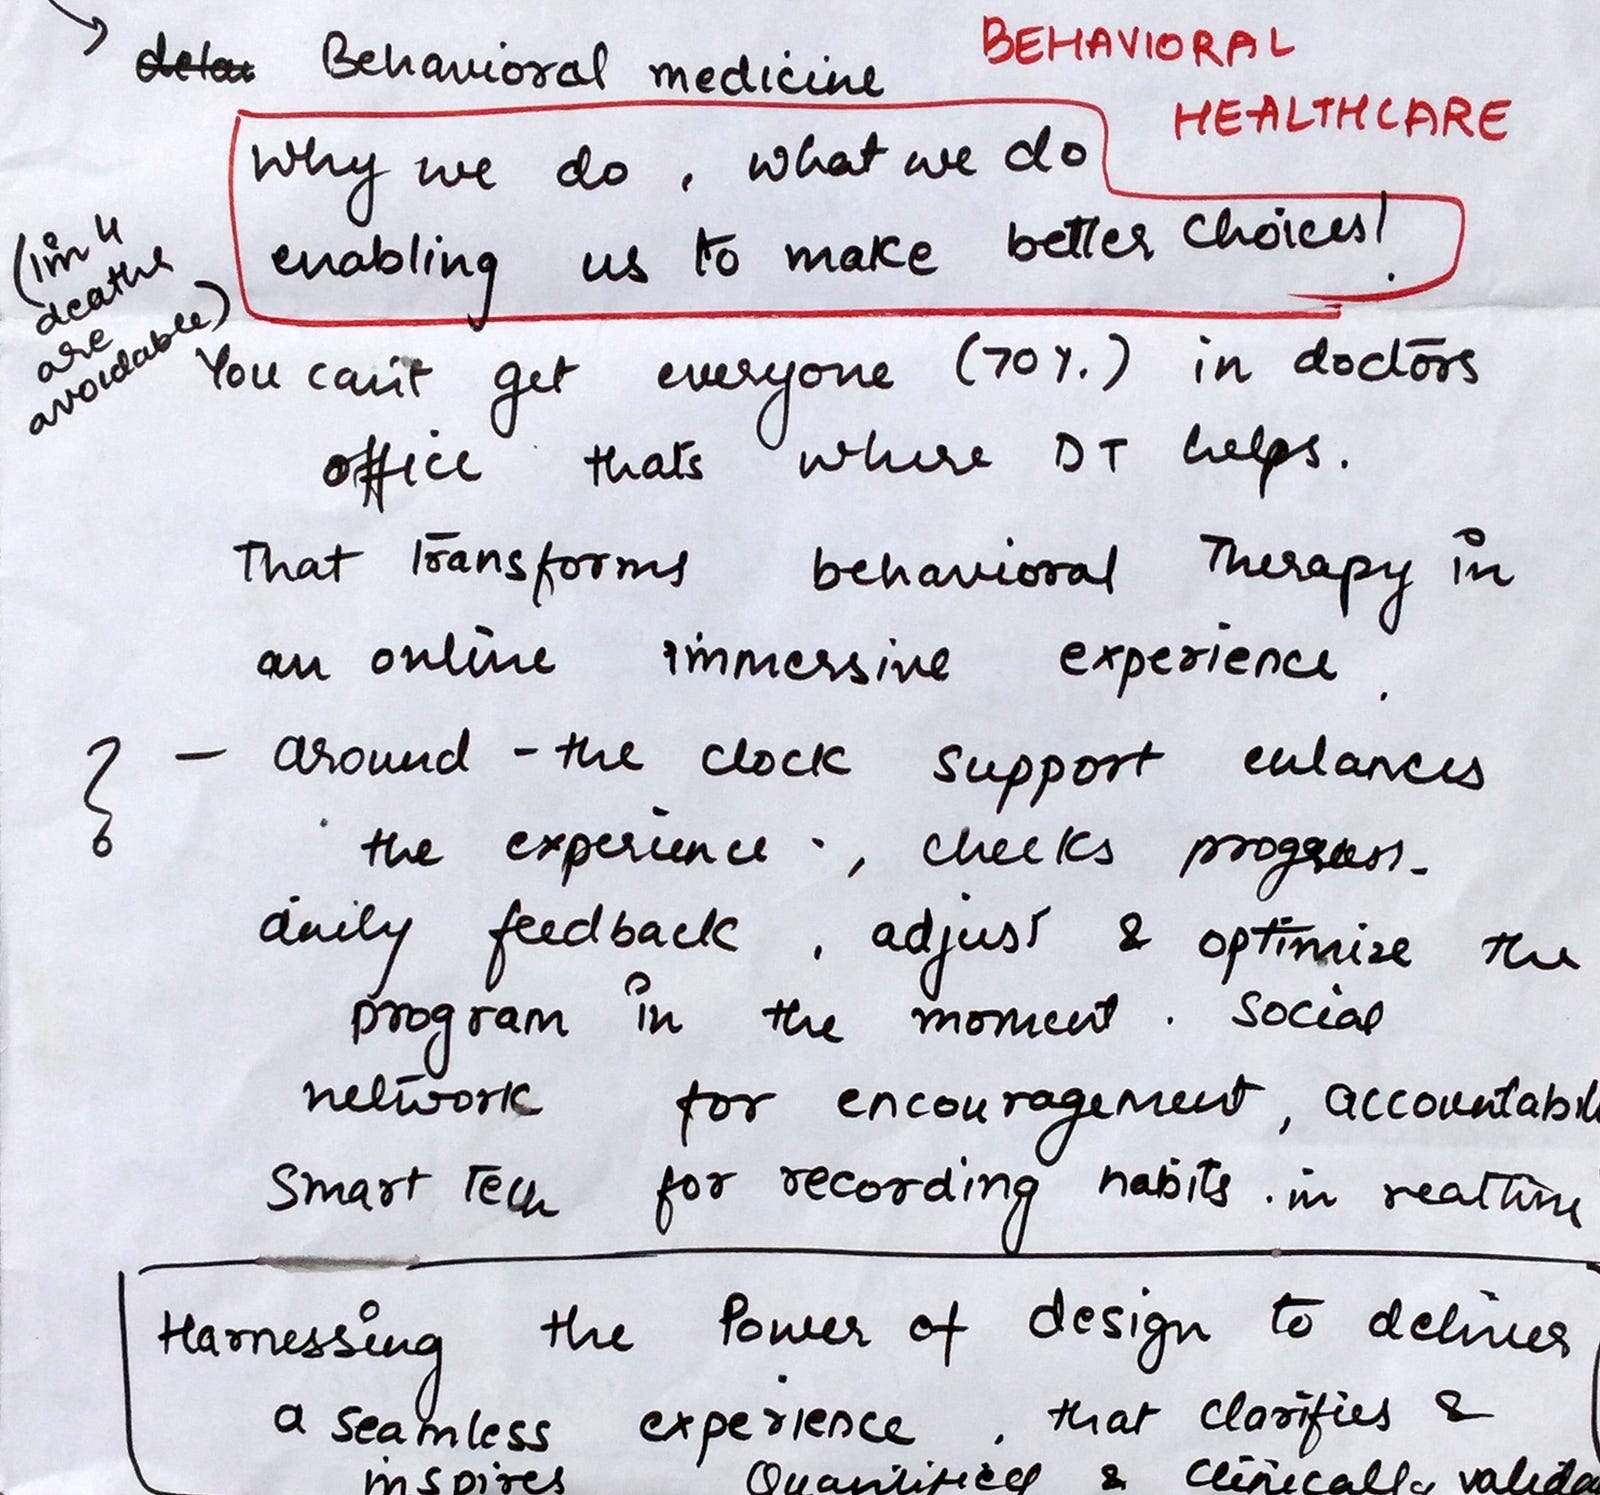 Behavioral medicine
BEHAVIORAL
HEALTHCARE
Why we do, what we do
enabling us to make better choices!
(1 in 4
deaths
are
avoidable)
You can't get everyone (70%) in doctors
office thats where DT helps.
That Transforms behavioral Therapy in
an online immersive experience.
- around - the clock support enhances
the experience ., checks progress.
daily feedback, adjust & optimize the
program in the moment. Social
network for encouragement, accountabili
Smart Tech for recording habits. in realtime
Harnessing the Power of design to deliver
a seamless experience, that clarifies &
inspires Quantified & Clinically valida